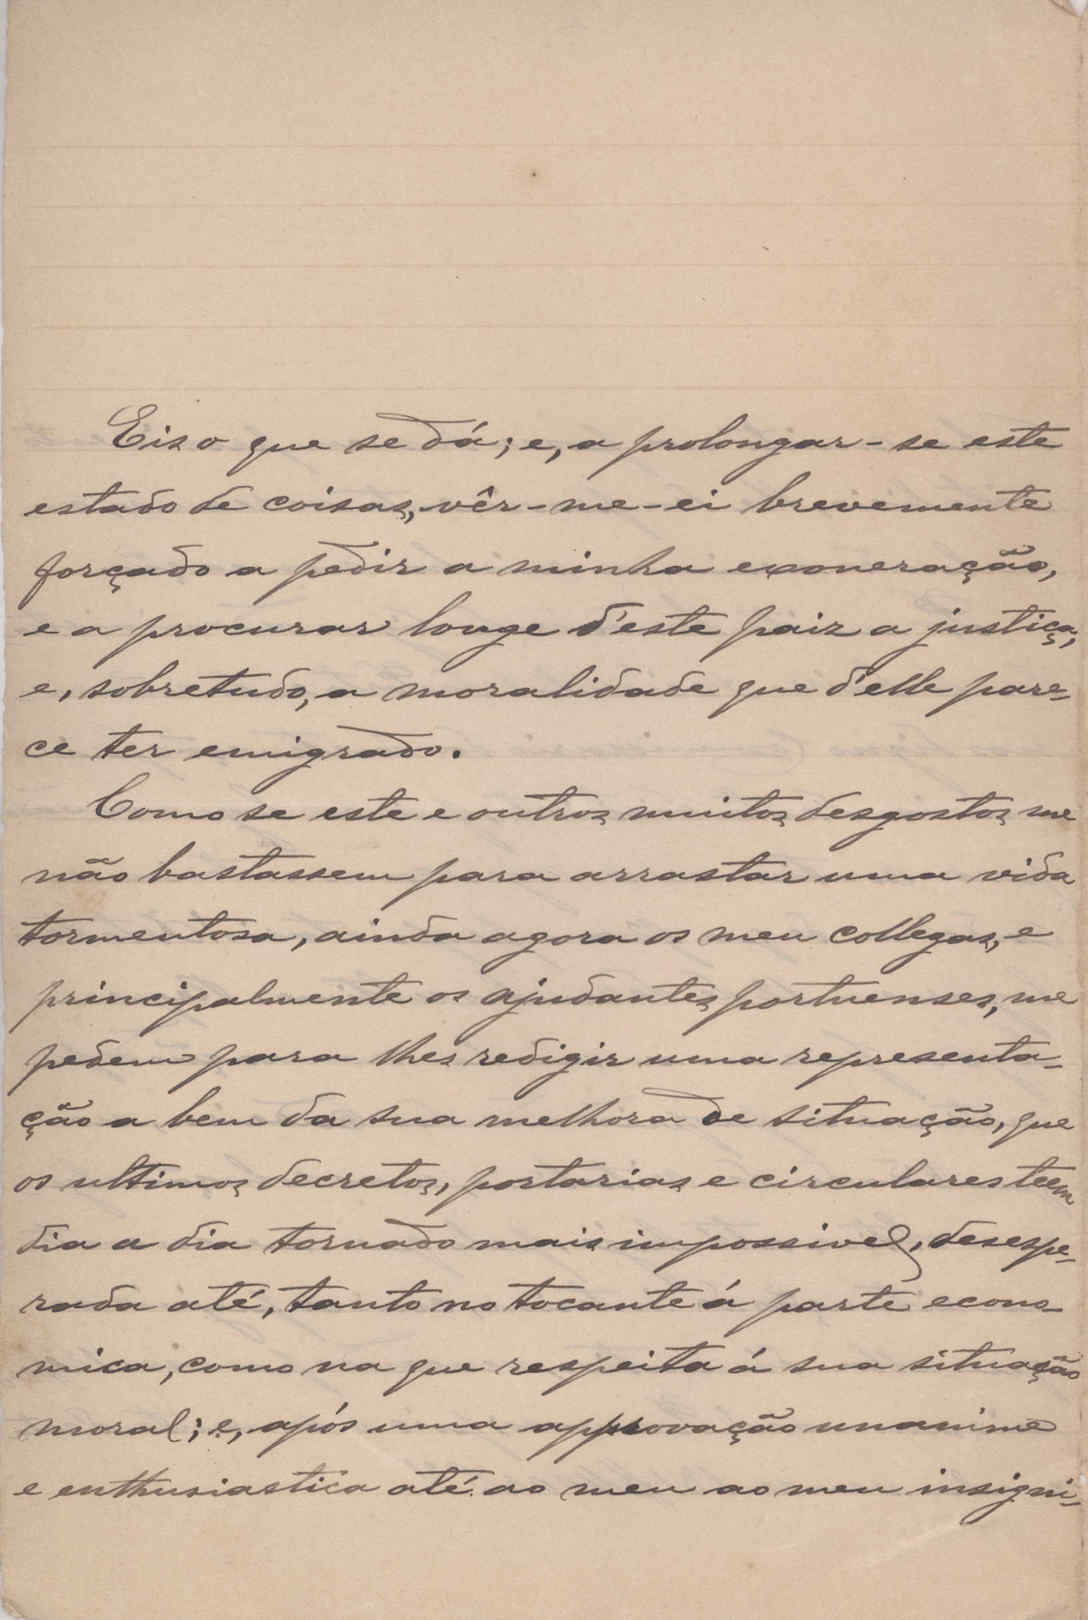 Eis o que se dá; e, a prolongar-se este
estado de coisas, vêr-me-ei brevemente
forçado a pedir a minha exoneração,
e a procurar longe d'este paiz a justiça,
e, sobretudo, a moralidade que d'elle pare-
ce ter emigrado.
Como se este e outros muitos desgostos me
não bastassem para arrastar uma vida
tormentosa, ainda agora os meu collegas, e
principalmente os ajudantes portuenses, me
pedem para lhes redigir uma representa-
ção a bem da sua melhora de situação, que
os ultimos decretos, portarias e circulares teem
dia a dia tornado mais impossivel, desespe-
rada até, tanto no tocante á parte econo-
mica, como na que respeita á sua situação
moral; e, após uma approvação unanime
e enthusiastica até ao meu ao meu insigni-